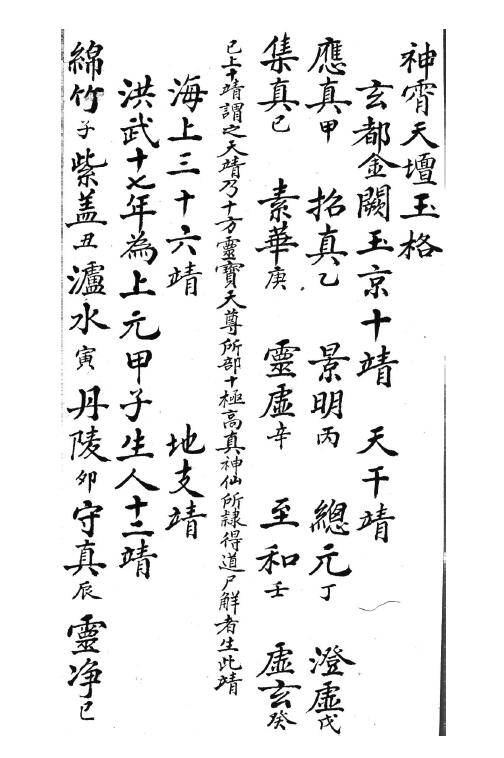 神霄天壇玉格
玄都金闕玉京十靖 天干靖
應真甲 招真乙 景明丙 總元丁 澄虛戊
集真己 素華庚 靈虛辛 至和壬 虛玄癸
已上十靖謂之天靖乃十方靈寶天尊所部十極高真神仙所隸得道尸解者生此靖
海上三十六靖 地支靖
洪武十七年為上元甲子生人十二靖
綿竹子 紫盖丑 瀘水寅 丹陵卯 守真辰 靈净巳